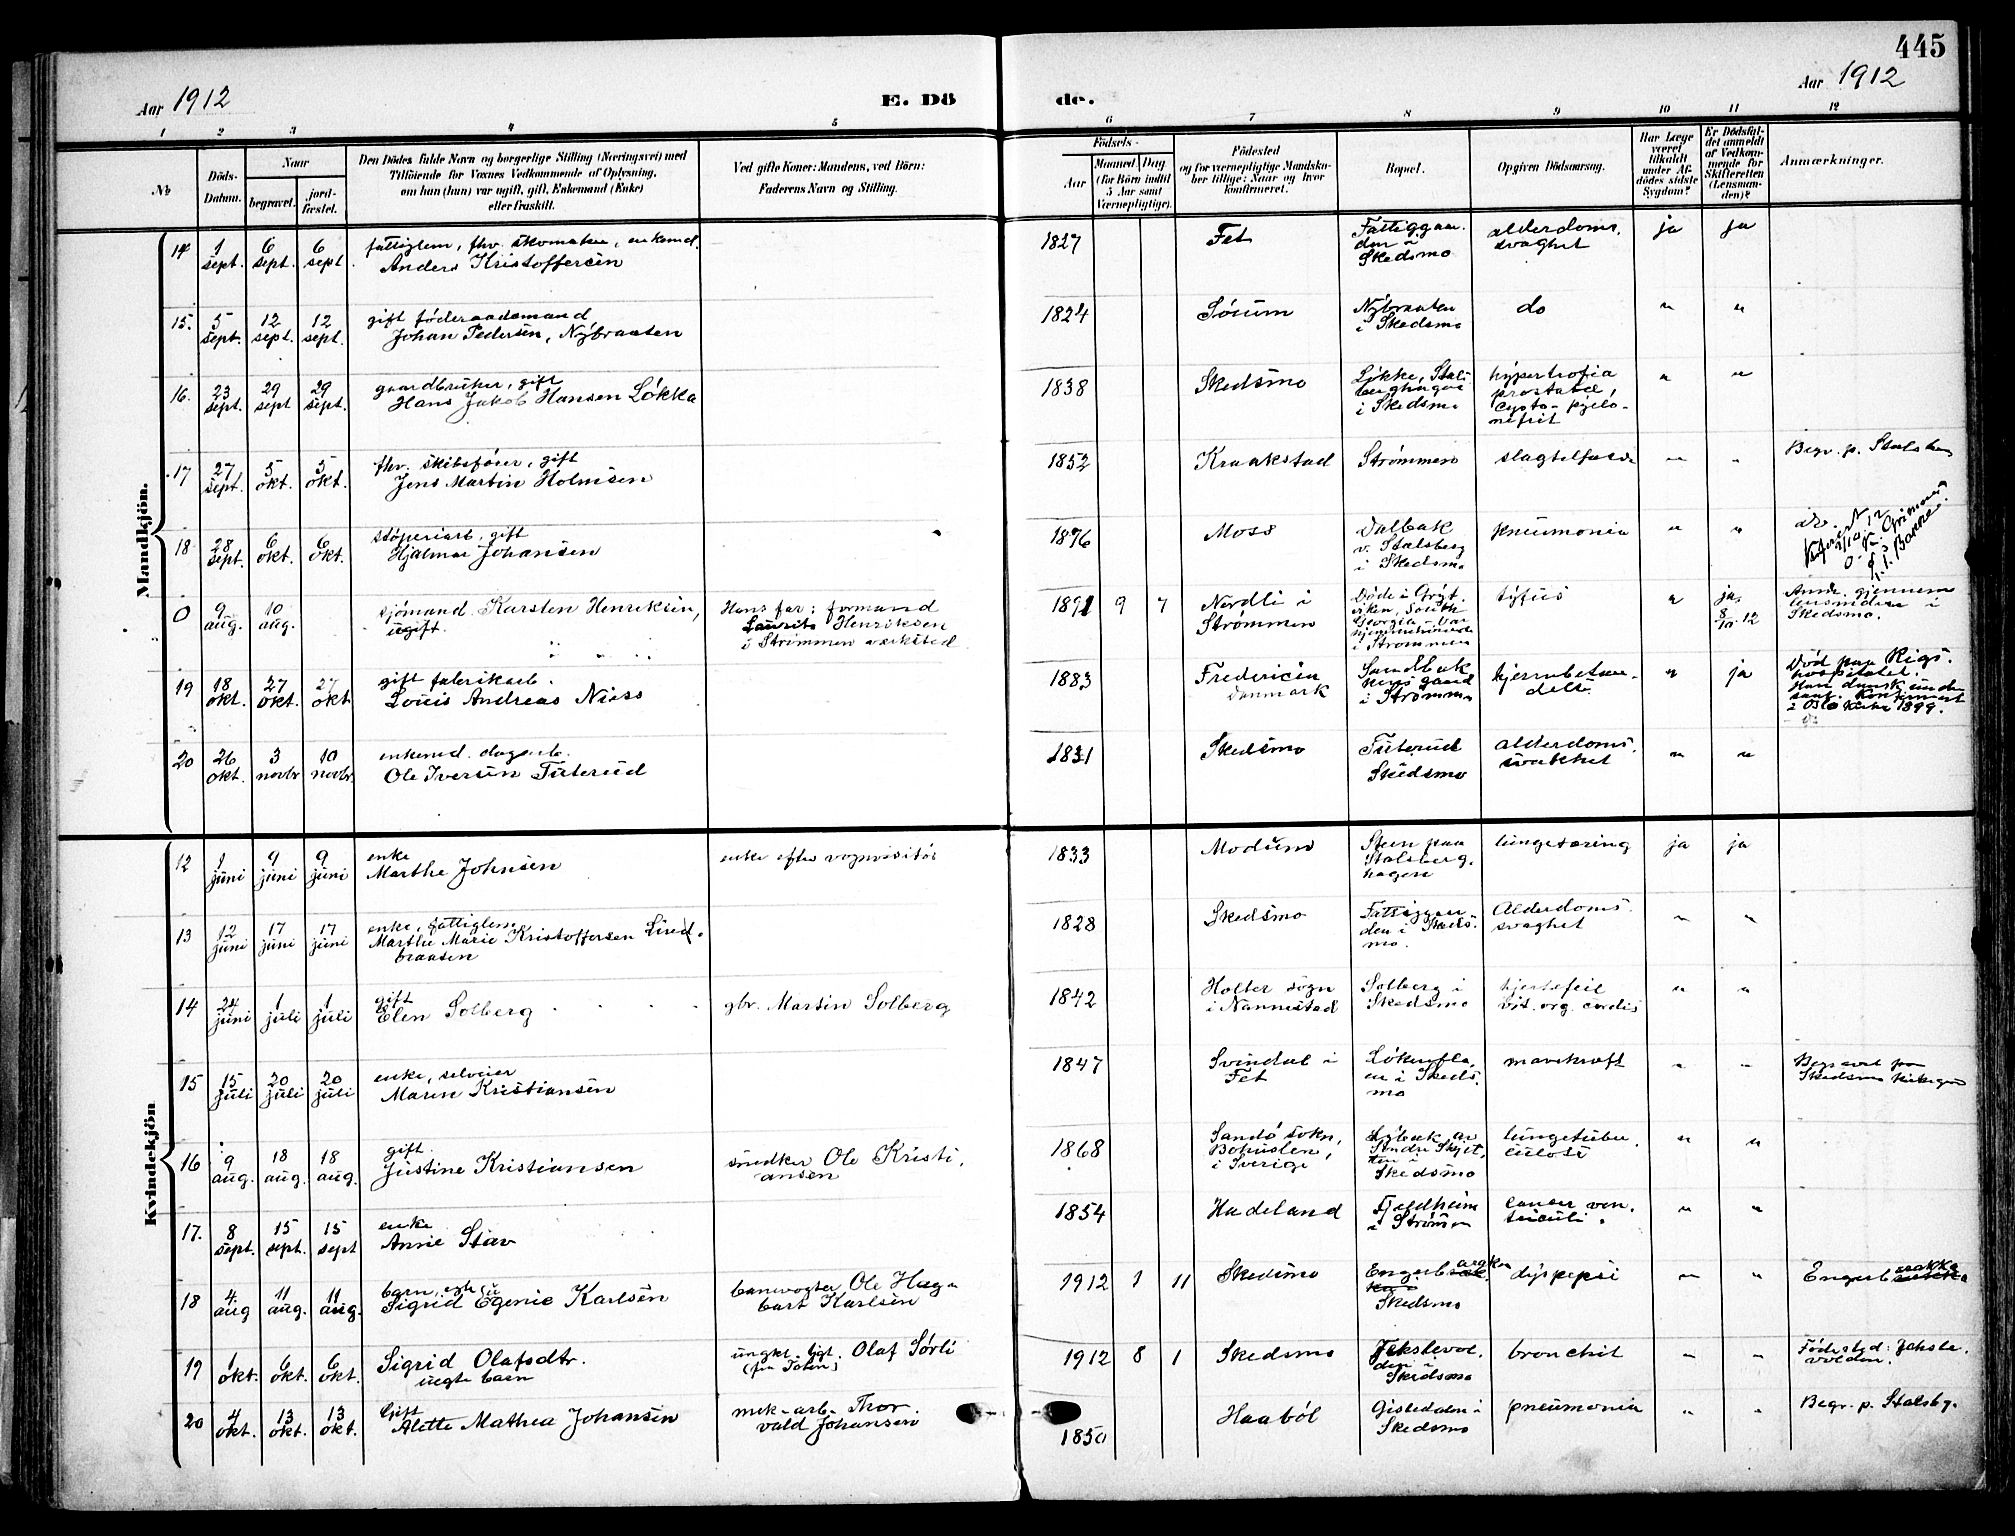 445
Aar 1912
E. Dö
de.
Aar 1912
1 2 3 4 5 6 7 8 9 10 11 12
№
Döds-
Datum.
Naar
begravet.
jord-
fæstet.
Den Dödes fulde Navn og borgerlige Stilling (Næringsvei) med
Tilföiende for Voxnes Vedkommende af Oplysning,
om han (hun) var ugift, gift, Enkemand (Enke)
eller fraskilt.
Ved gifte Koner: Mandens, ved Börn:
Faderens Navn og Stilling.
Födsels-
Aar
Maaned Dag
(for Börn indtil
5 Aar samt
Værnepligtige).
Födested
og for værnepligtige Mandska-
ber tillige: Naar og hvor
konfirmeret.
Bopæl.
Opgiven Dödsaarsag.
Har Læge
været
tilkaldt
under Af-
dödes sidste
Sygdom?
Er Dödsfal-
det anmeldt
af Vedkom-
mende for
Skifteretten
(Lensman-
den)?
Anmærkninger.
Mandkjön.
14 1 sept. 6 sept. 6 sept.
fattiglem, fhv. skomaker, enkemd.
Anders Kristoffersen
1827 Fet
Fattiggaar-
den i
Skedsmo
alderdoms-
svaghet
ja ja
15. 5 sept. 12 sept. 12 sept.
gift föderaadsmand
Johan Pedersen, Nybraaten
1824 Sörum
Nybraaten
i Skedsmo
do " "
16. 23 sept. 29 sept 29 sept.
gaardbruker, gift
Hans Jakob Hansen Lökka
1838 Skedsmo
Løkke, Stals
berghagen
i Skedsmo
hypertrofia
prostatæ,
Cysto-pyelo-
nefrit
" "
17 27 sept. 5 okt. 5 okt.
fhv. skibsfører, gift
Jens Martin Holmsen
1852 Kraakstad Strømmen
" "
Begr. p. Stalsberg
18 28 sept. 6 okt. 6 okt.
støperiarb. gift
Hjalmar Johansen
1876 Moss
Dalbak
v. Stalsberg
i Skedsmo
pneumonia " "
do.
0 9 aug. 10 aug.
sjömand Karsten Henriksen,
ugift.
Hans far: formand
Laurits Henriksen
i Strømmen værksted.
1891 9 7
Nordli i
Strømmen
Døde i Gryt-
viken, South
Georgia - Var
hjemmehörende
i Strømmen
tyfus " ja 8/10.12
Anm. gjennem
lensmanden i
Skedsmo.
19 18 okt. 27 okt. 27 okt
gift fabrikarb.
Louis Andreas Niss
1883 Fredericia
Danmark
Sandbak
i Strømmen
hjernebetæn-
delse
" ja
Død paa Rigs-
hospitalet.
Han dansk under
saat. Konfirmert
i Oslo kirke 1899.
20 26 okt. 3 novbr 10 novbr.
enkemd. dagarb.
Ole Iversen Tuterud
1831 Skedsmo
Tuterud
Skedsmo
alderdoms-
svakhet
" "
Kvindekjön
12 1 juni 9 juni 9 juni
enke
Marthe Johnsen
enke efter vognvisitör
1833 Modum
Steen paa
Stalsberg-
hagen
lungetæring ja ja
13 12 juni 17 juni 17 juni
enke, fattiglem
Marthe Marie Kristoffersen Lind-
braaten
1828 Skedsmo
Fattiggaar-
den i Skeds-
mo.
Alderdoms-
svaghet
" "
14 24 juni 1 juli 1 juli
gift
Elen Solberg
gbr. Martin Solberg
1842
Holter sogn
i Nannestad
Solberg i
Skedsmo
hjertefeil
vit. org. cordis
" "
15 15 juli 20 juli 20 juli
enke, selveier
Maren Kristiansen
1847
Svindal i
Fet
i Skeds-
mo
mavekræft " "
Begravet paa
Skedsmo kirkegaard
16 9 aug. 18 aug. 18 aug.
gift.
Justine Kristiansen
snedker Ole Kristi-
ansen
1868
Sandö sokn,
Bohuslen,
i Sverige
Lybæk av
Søndre Skjet-
ten i
Skedsmo
lungetuber-
culose
" "
17. 8 sept. 15 sept. 15 sept
enke
Anne Stav
1854 Hadeland
Fjeldheim
i Strømmen
cancer ven-
triculi.
" "
18 4 aug 11 aug. 11 aug.
barn, egte
Sigrid Egenie Karlsen
banevogter Ole Hag-
bart Karlsen
1912 1 11 Skedsmo
Skedsmo
dyspepsi " "
19 1 okt. 6 okt. 6 okt.
Sigrid Olafsdtr.
uegte barn
ungkt. Olaf Sørli
1912 8 1 Skedsmo
Jekslevol-
den i
Skedsmo
bronchit " "
Fødested: Jeksle-
volden.
20 4 okt. 13 okt. 13 okt.
Gift
Alette Mathea Johansen
mek-arb- Thor-
vald Johansen
1850 Haaböl
i
Skedsmo
pneumonia " "
Begr. p. Stalsbg.